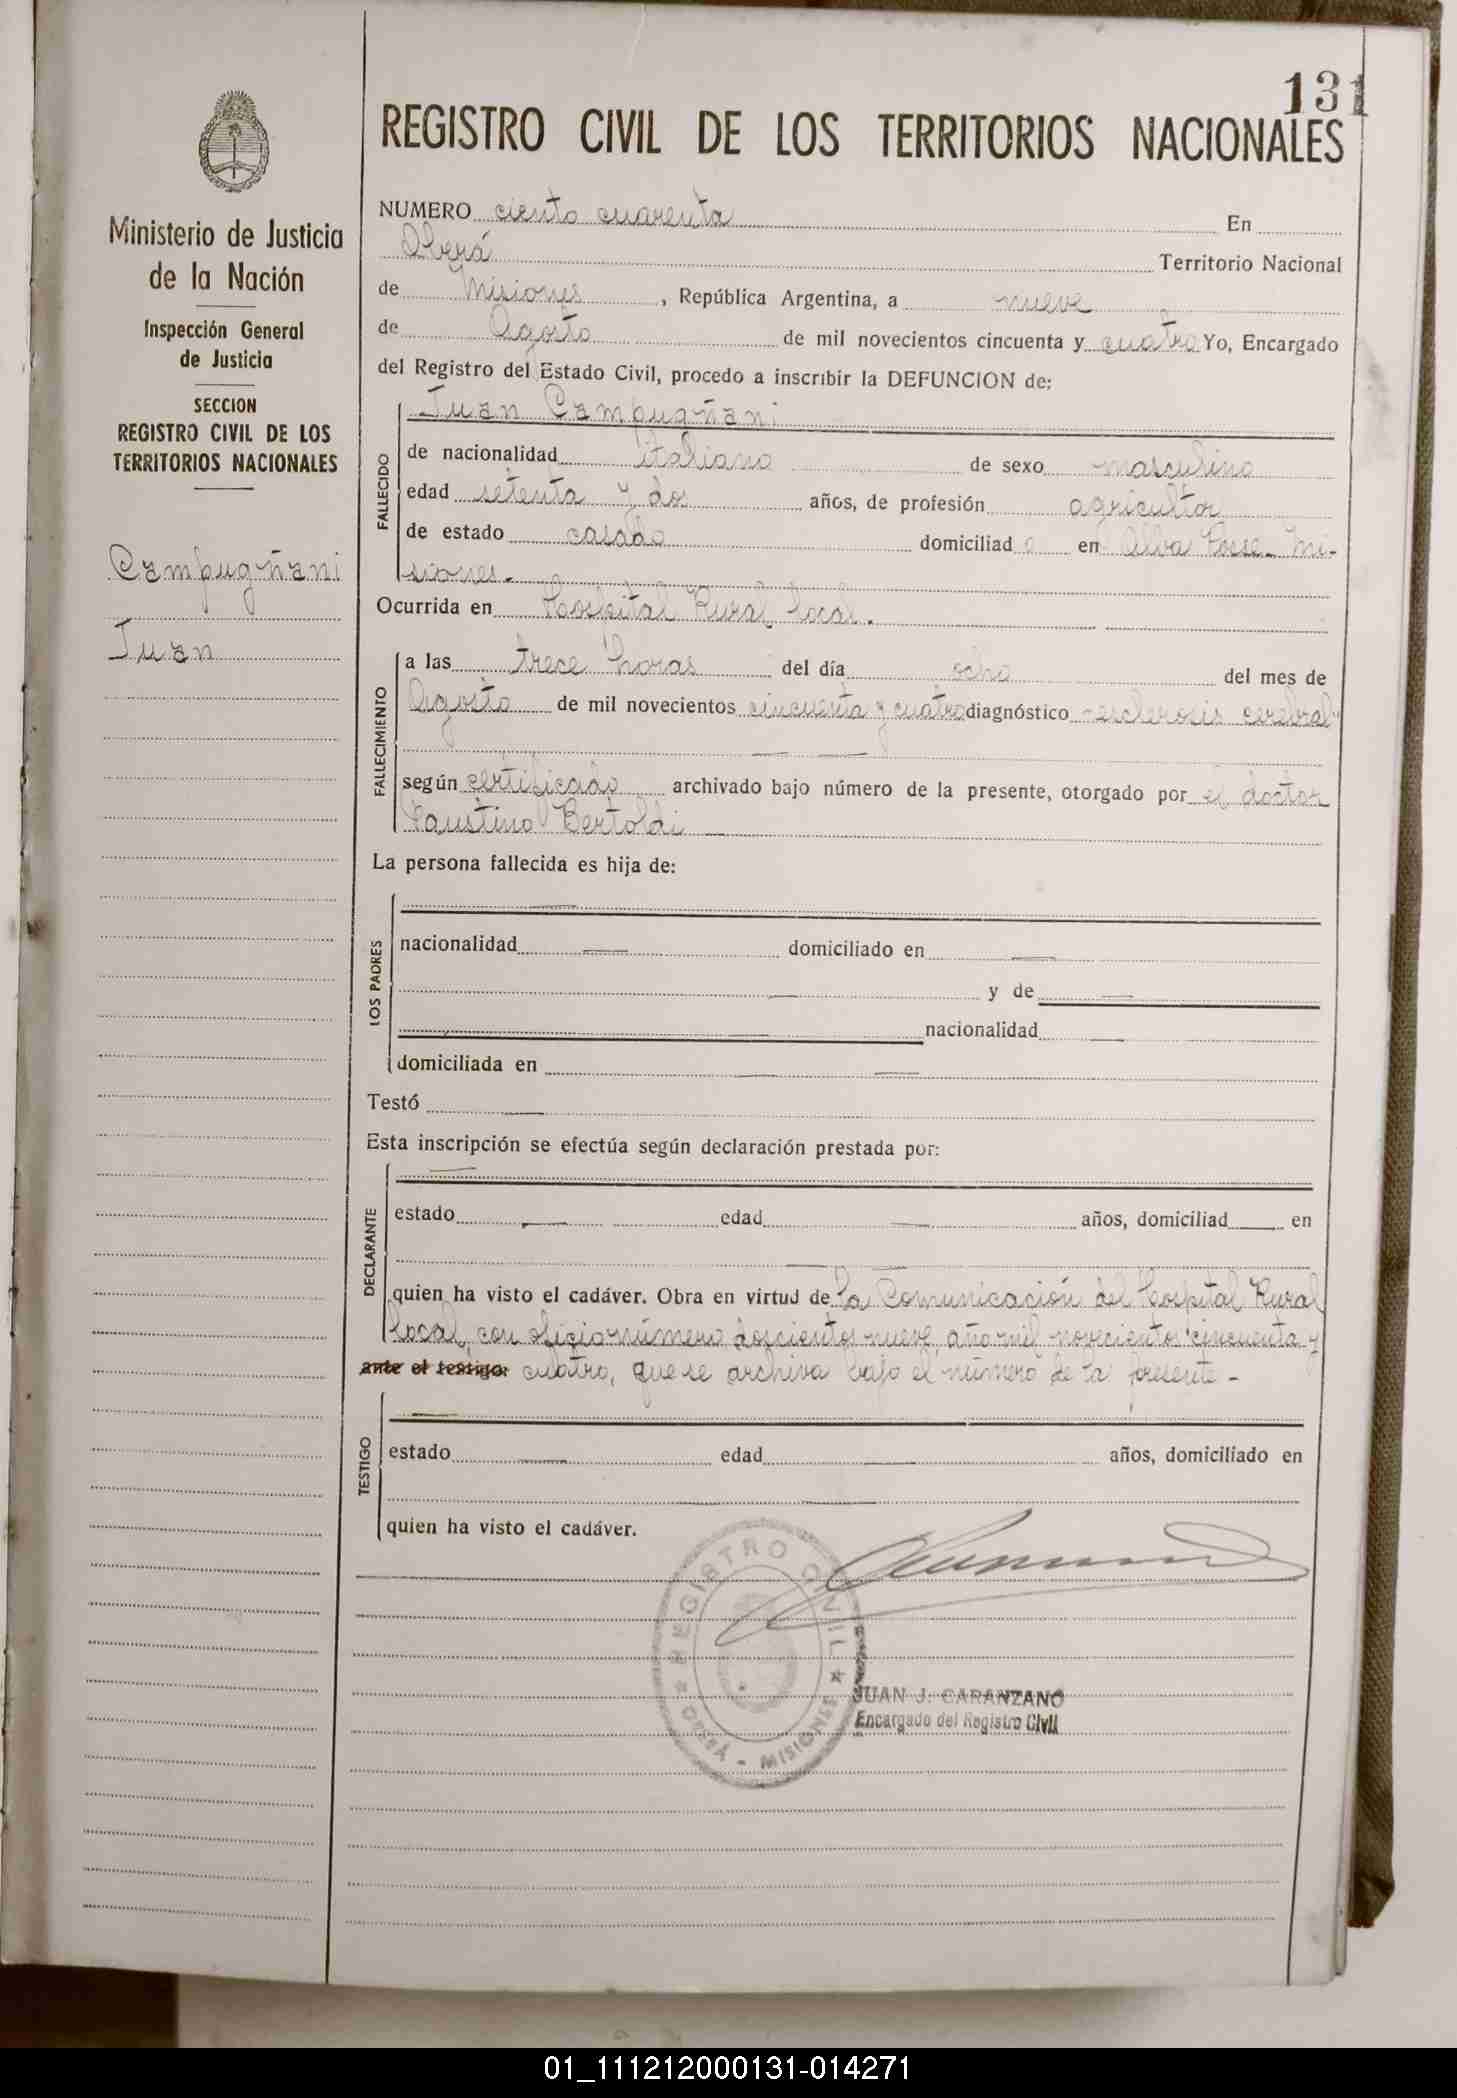 131
REGISTRO CIVIL DE LOS TERRITORIOS NACIONALES
Ministerio de Justicia
de la Nación
Inspección General
de Justicia
SECCION
REGISTRO CIVIL DE LOS
TERRITORIOS NACIONALES
Campugñani
Juan
NUMERO ciento cuarenta En
Oberá Territorio Nacional
de Misiones, República Argentina, a nueve
de Agosto de mil novecientos cincuenta y cuatro Yo, Encargado
del Registro del Estado Civil, procedo a inscribir la DEFUNCION de:
FALLECIDO
Juan Campugñani
de nacionalidad italiano de sexo masculino
edad setenta y dos años, de profesión agricultor
de estado casado domiciliado en Alba Posse - Mi-
siones.-
Ocurrida en Hospital Rural local.
FALLECIMIENTO
a las trece horas del día ocho del mes de
Agosto de mil novecientos cincuenta y cuatro diagnóstico -esclerosis cerebral-
según certificado archivado bajo número de la presente, otorgado por el doctor
Faustino Bertoldi
La persona fallecida es hija de:
LOS PADRES
nacionalidad domiciliado en
y de
nacionalidad
domiciliada en
Testó
Esta inscripción se efectúa según declaración prestada por:
DECLARANTE
estado edad años, domiciliad en
quien ha visto el cadáver. Obra en virtud de la Comunicación del Hospital Rural
local, con oficio número doscientos nueve, año mil novecientos cincuenta y
ante el testigo: cuatro, que se archiva bajo el número de la presente -
TESTIGO
estado edad años, domiciliado en
quien ha visto el cadáver.
REGISTRO CIVIL
OBERÁ - MISIONES
JUAN J. CARANZANO
Encargado del Registro Civil
01_111212000131-014271